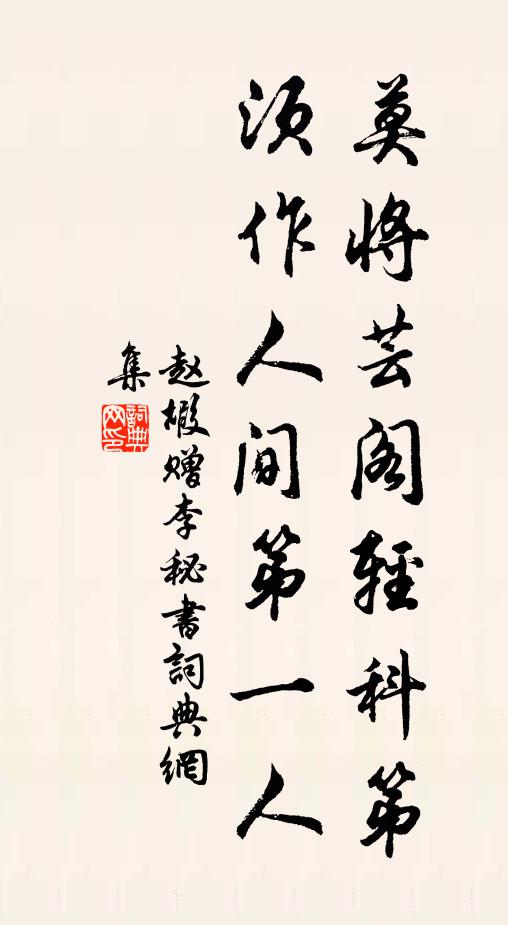 莫将芸阁輕科第
须作人间第一人
赵嘏赠李秘書詞典網
集
詞典网印